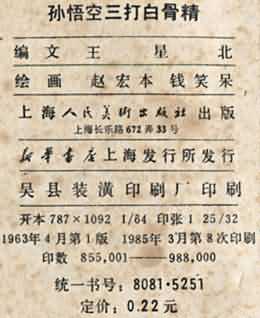 孙悟空三打白骨精
编文 王星北
绘画 赵宏本 钱笑呆
上海人民美術出版社 出版
上海长乐路672弄33号
新华書店上海发行所发行
吴县装潢印刷厂印刷
开本787×1092 1/64 印张1 25/32
1963年4月第1版 1985年3月第8次印刷
印数 855,001——988,000
统一书号：8081·5251
定价：0.22元